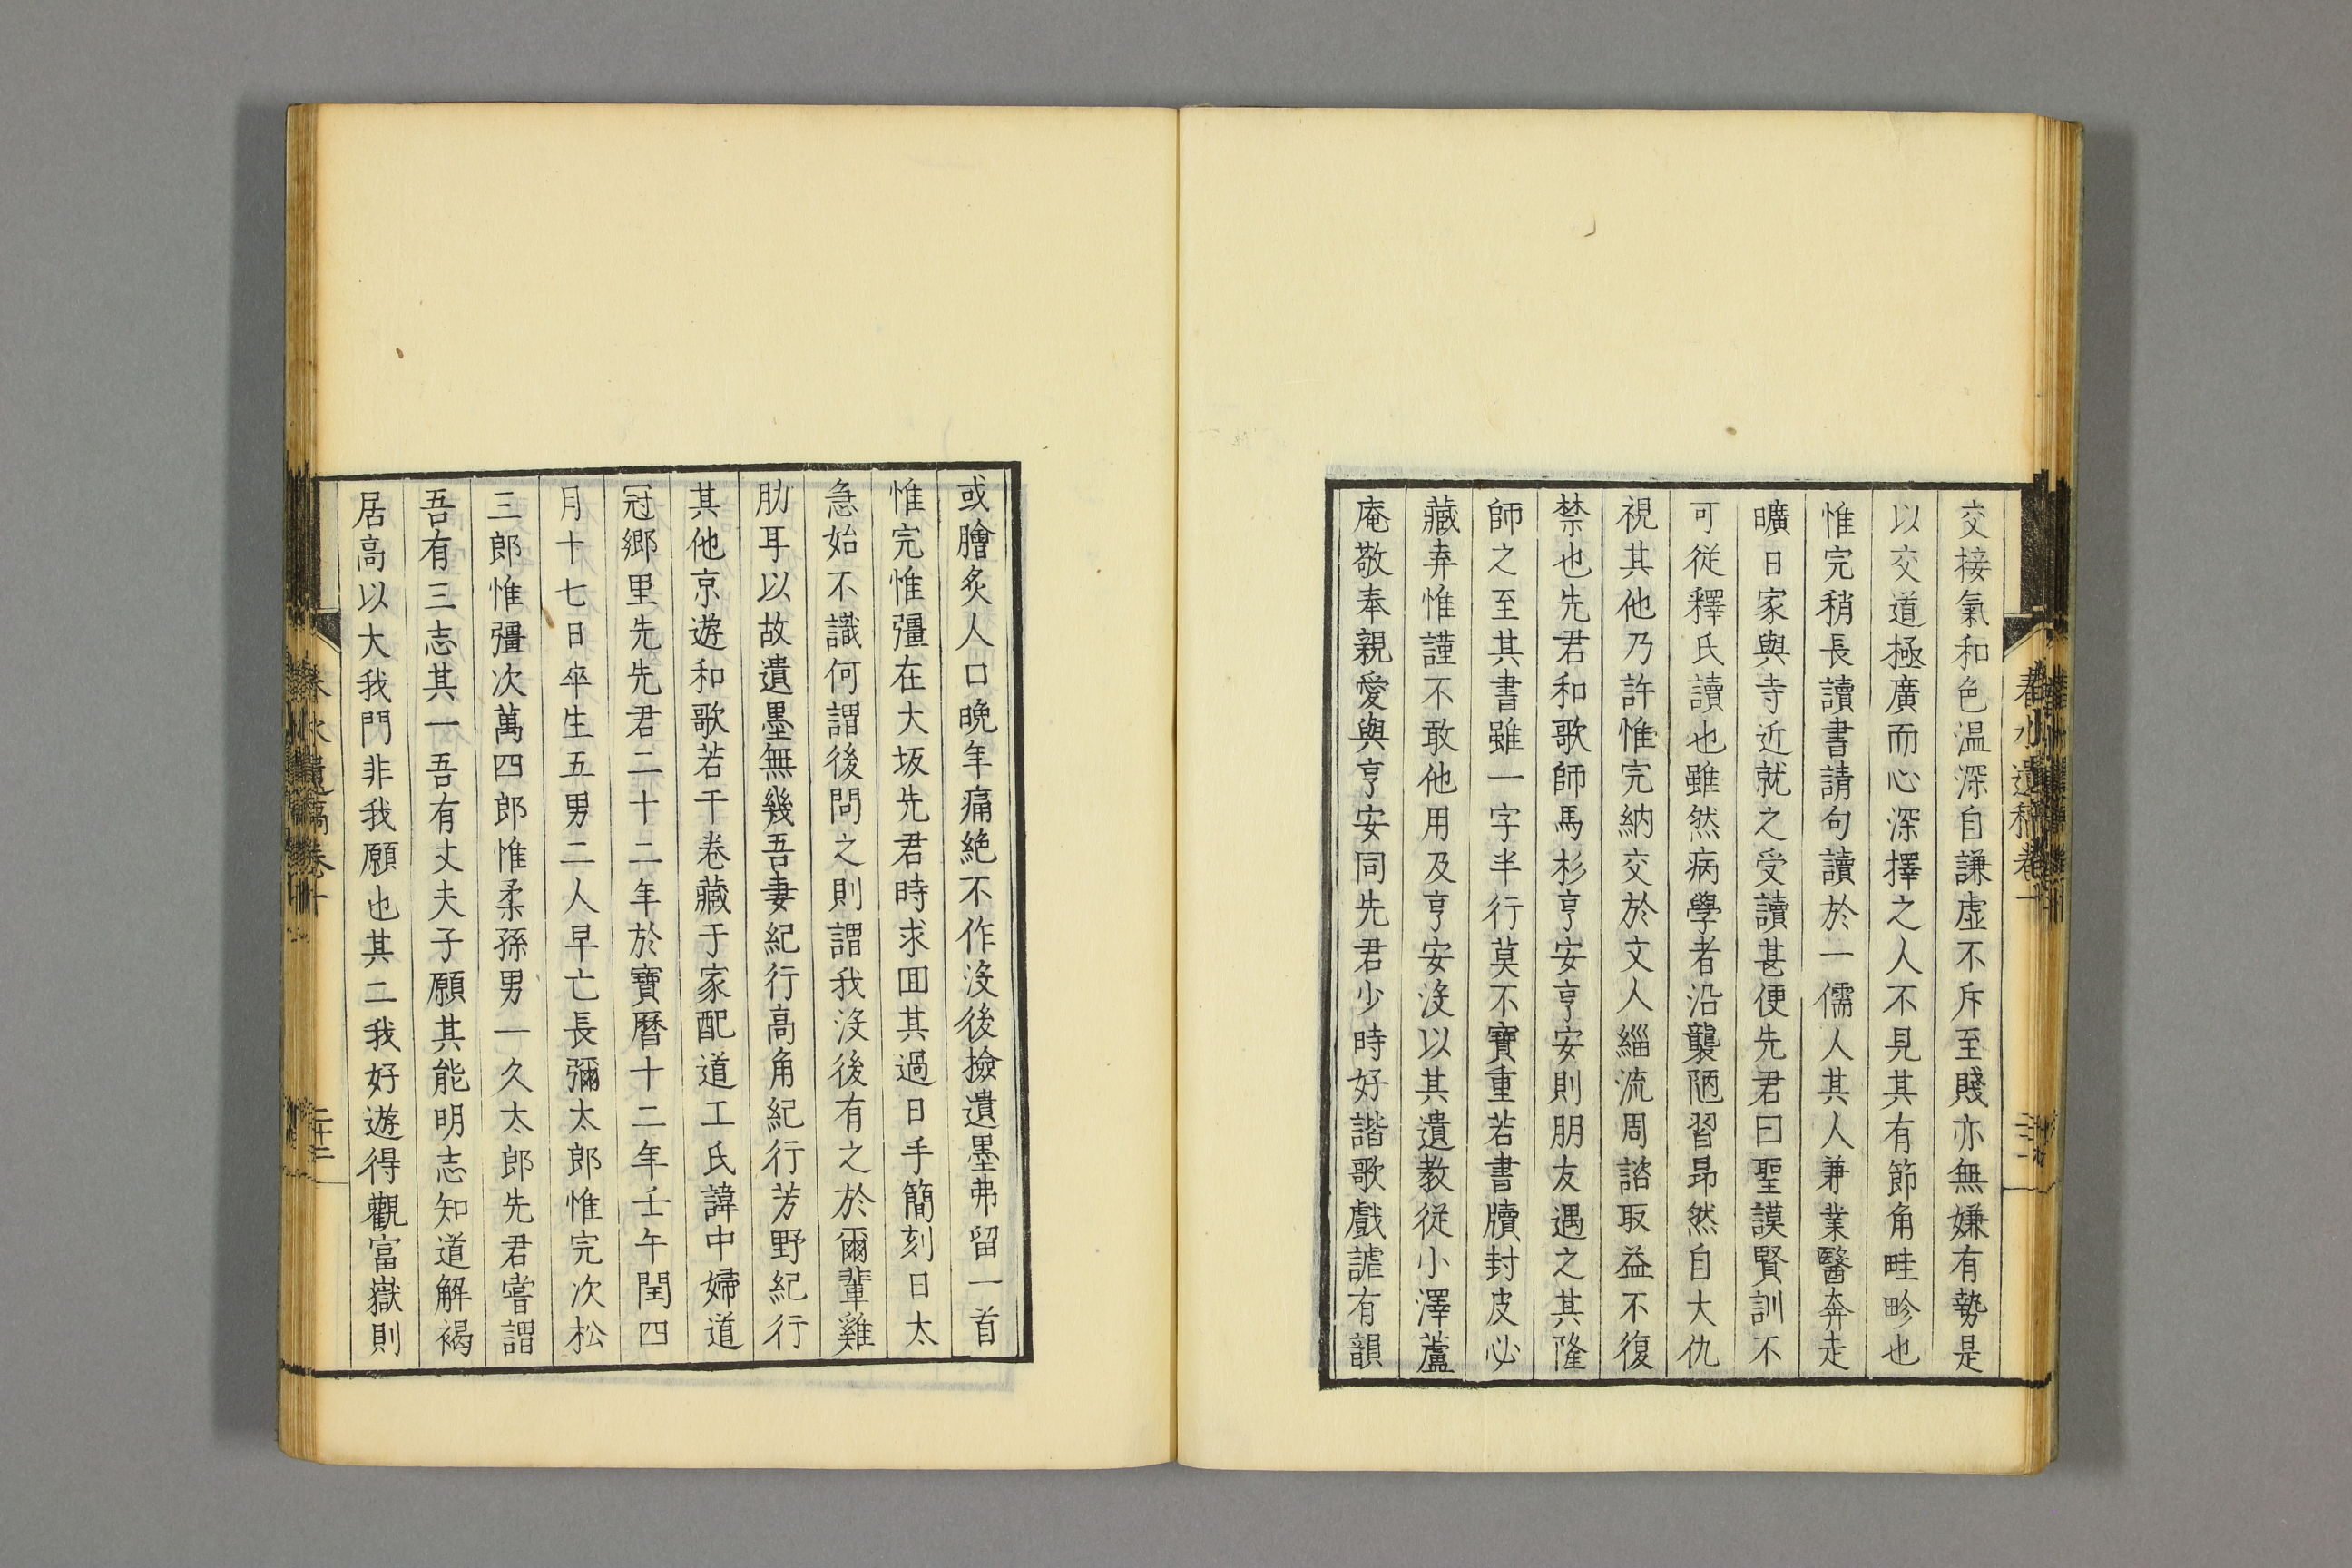 交接氣和色温深自謙虛不斥至賤亦無嫌有勢是
以交道極廣而心深擇之人不見其有節角畦畛也
惟完稍長讀書請句讀於一儒人其人兼業醫奔走
曠日家與寺近就之受讀甚便先君曰聖謨賢訓不
可從釋氏讀也雖然病學者沿襲陋習昂然自大仇
視其他乃許惟完納交於文人緇流周諮取益不復
禁也先君和歌師馬杉亨安亨安則朋友遇之其隆
師之至其書雖一字半行莫不寶重若書牘封皮必
藏弆惟謹不敢他用及亨安沒以其遺教從小澤蘆
庵敬奉親愛與亨安同先君少時好諧歌戲謔有韻
或膾炙人口晩年痛絶不作沒後撿遺墨弗留一首
惟完惟彊在大坂先君時求囬其過日手簡刻日太
急始不識何謂後問之則謂我沒後有之於爾輩雞
肋耳以故遺墨無幾吾妻紀行高角紀行芳野紀行
其他京遊和歌若干卷藏于家配道工氏諱中婦道
冠鄉里先先君二十二年於寶曆十二年壬午閏四
月十七日卒生五男二人早亡長彌太郎惟完次松
三郎惟彊次萬四郎惟柔孫男一久太郎先君嘗謂
吾有三志其一吾有丈夫子願其能明志知道解褐
居高以大我門非我願也其二我好遊得觀富嶽則
春水遺稿卷十
二十二